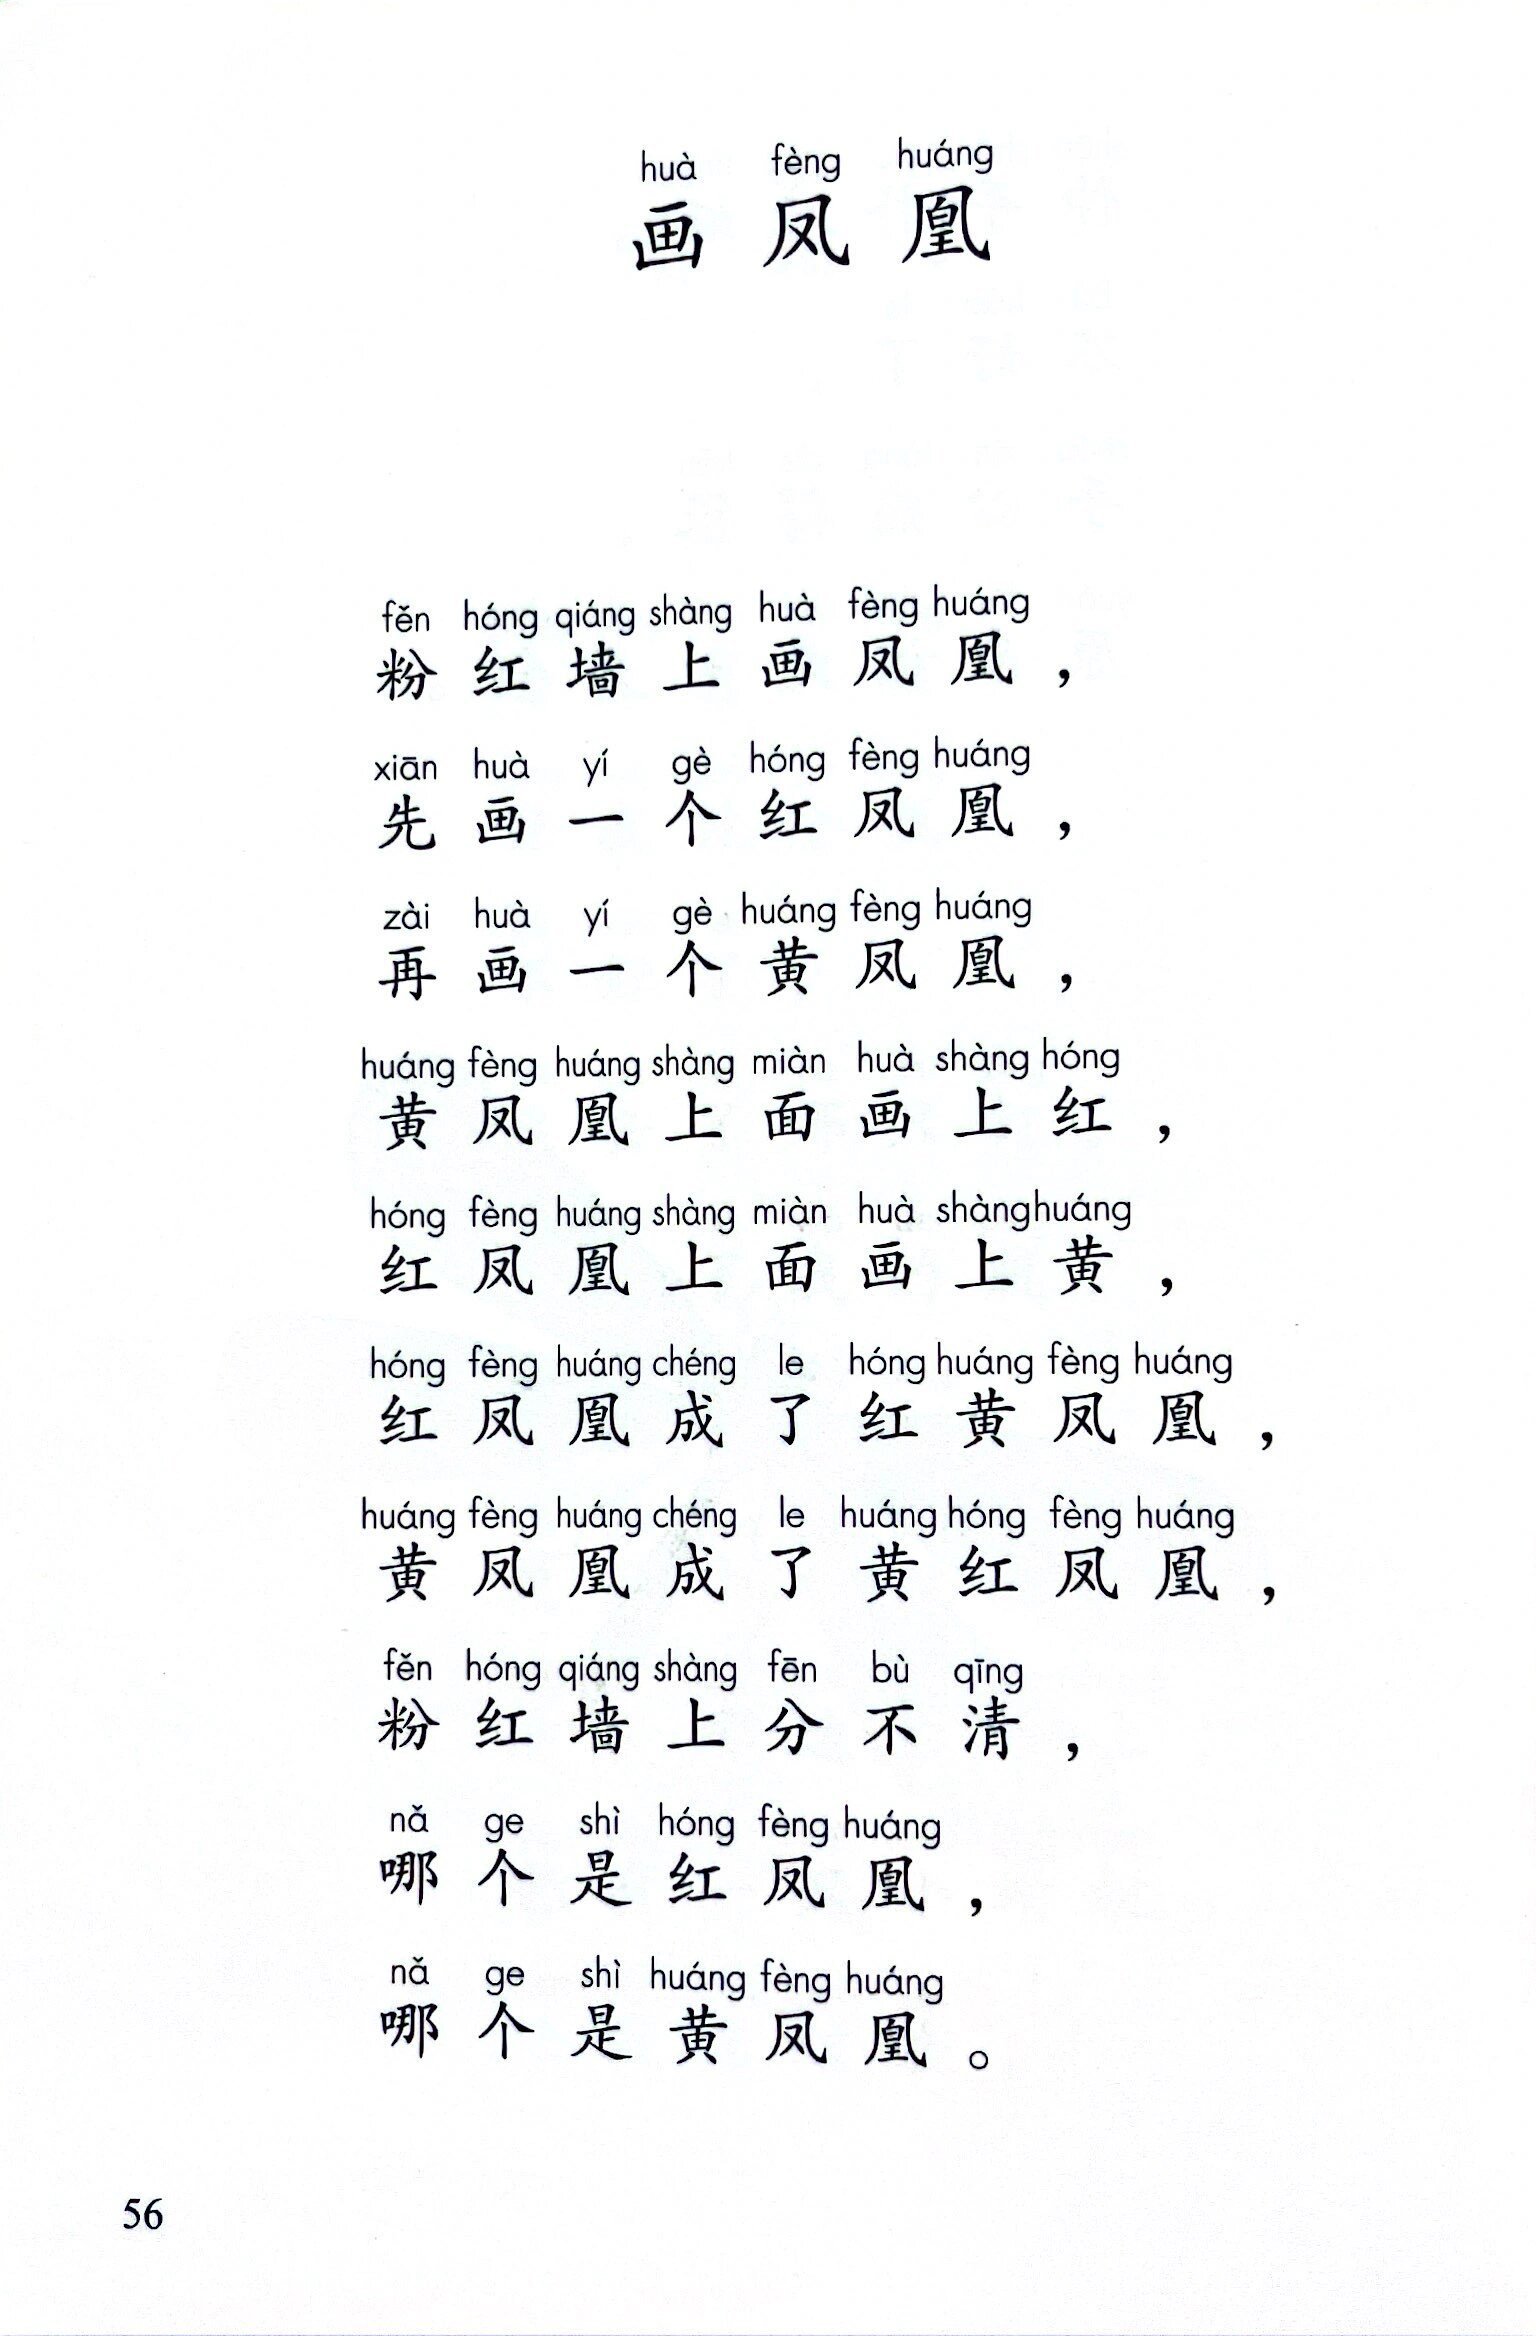 huà fèng huáng
画凤凰
fěn hóng qiáng shàng huà fèng huáng
粉红墙上画凤凰，
xiān huà yí gè hóng fèng huáng
先画一个红凤凰，
zài huà yí gè huáng fèng huáng
再画一个黄凤凰，
huáng fèng huáng shàng miàn huà shàng hóng
黄凤凰上面画上红，
hóng fèng huáng shàng miàn huà shàng huáng
红凤凰上面画上黄，
hóng fèng huáng chéng le hóng huáng fèng huáng
红凤凰成了红黄凤凰，
huáng fèng huáng chéng le huáng hóng fèng huáng
黄凤凰成了黄红凤凰，
fěn hóng qiáng shàng fēn bù qīng
粉红墙上分不清，
nǎ ge shì hóng fèng huáng
哪个是红凤凰，
nǎ ge shì huáng fèng huáng
哪个是黄凤凰。
56